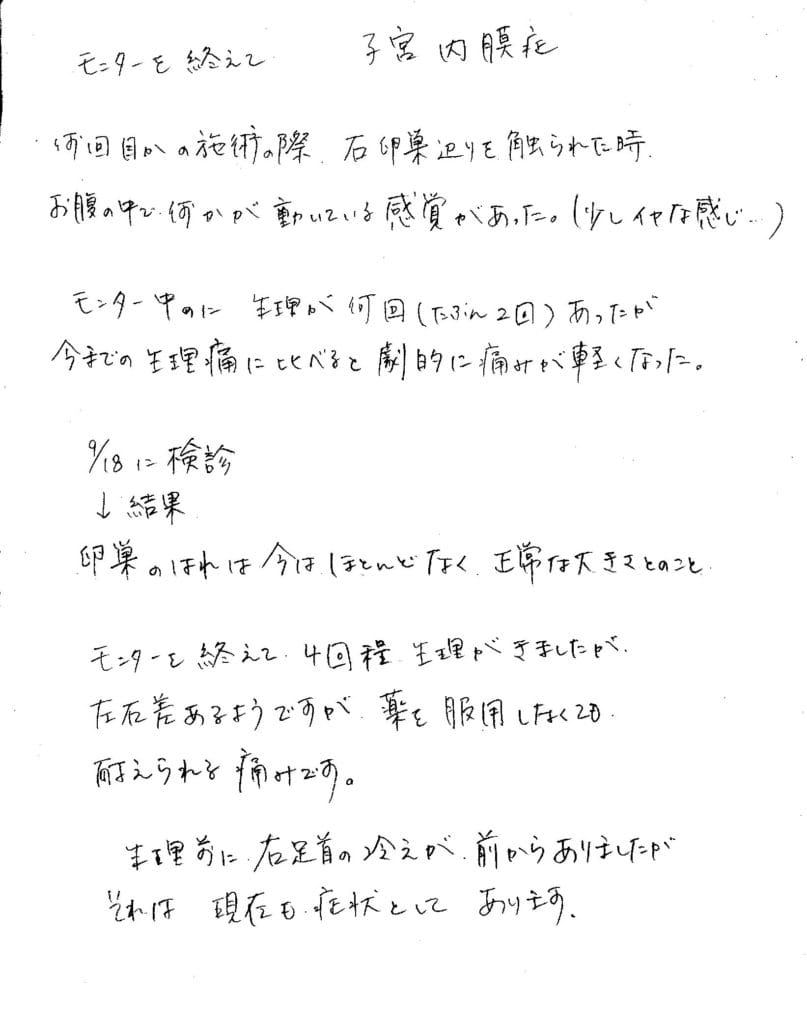 モニターを終えて　子宮内膜症
何回目かの施術の際、右卵巣辺りを触られた時、
お腹の中で何かが動いている感覚があった。(少しイヤな感じ…)
モニター中のに生理が何回(たぶん2回)あったが
今までの生理痛に比べると劇的に痛みが軽くなった。
9/18に検診
↓結果
卵巣のはれは今はほとんどなく、正常な大きさとのこと、
モニターを終えて、4回程、生理がきましたが、
左右差あるようですが、薬を服用しなくても、
耐えられる痛みです。
生理前に、右足首の冷えが、前からありましたが
それは　現在も、症状として　あります。